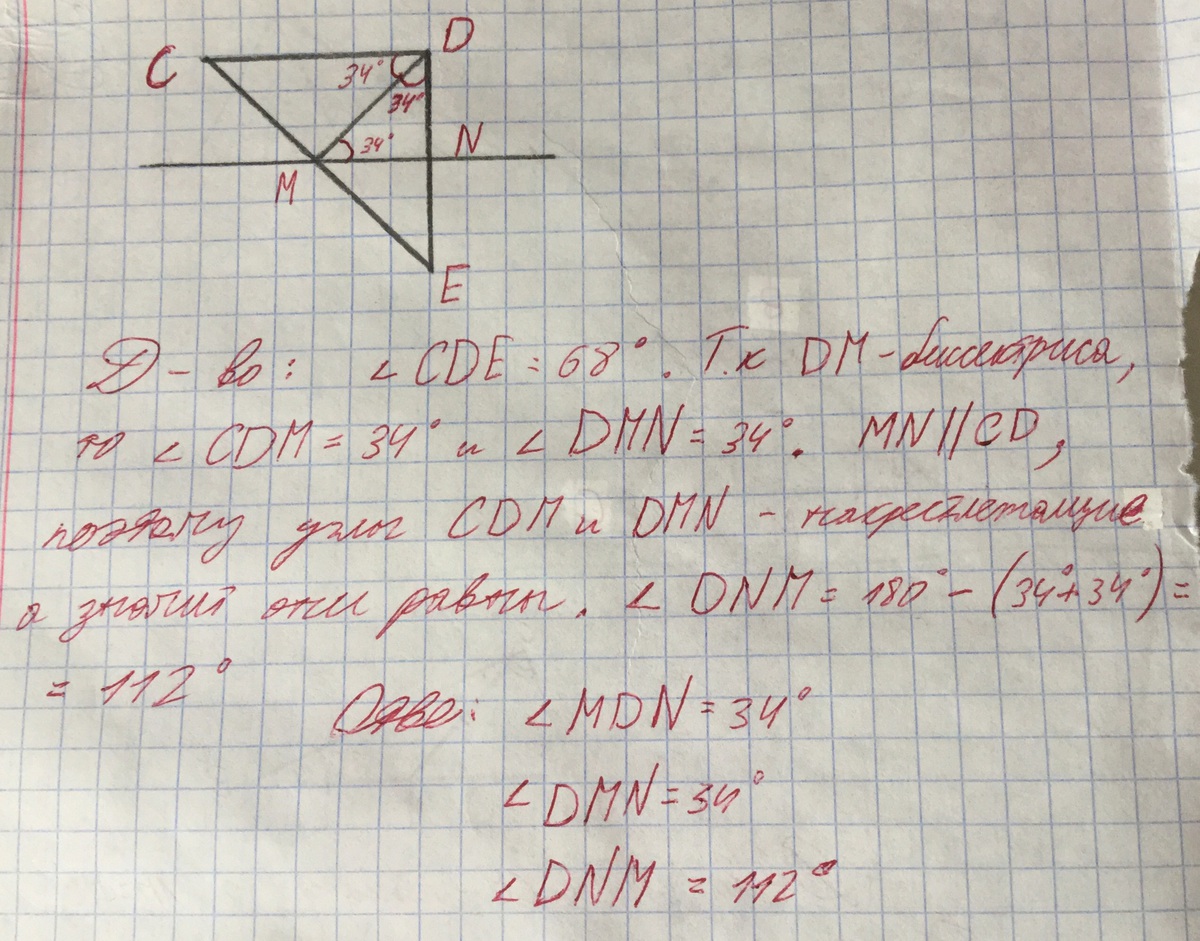 C
D
34°
34°
34°
N
M
E
Д-во: ∠CDE = 68°. Т.к DM-биссектриса,
то ∠CDM = 34° и ∠DMN = 34°. MN||CD,
поэтому углы CDM и DMN - накрестлежащие
а значит они равны. ∠DNM = 180° - (34°+34°) =
= 112°
Ответ: ∠MDN = 34°
∠DMN = 34°
∠DNM = 112°